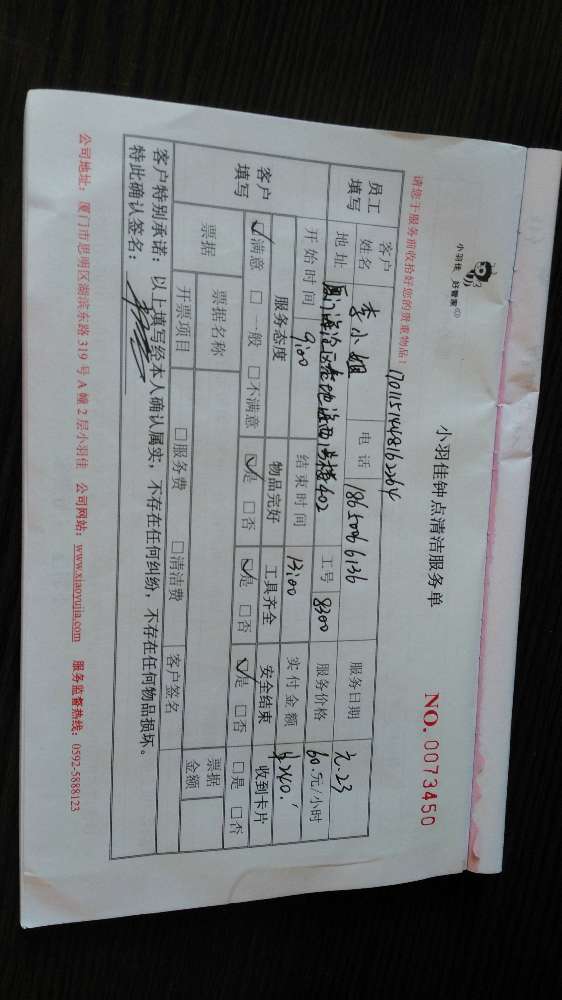 小羽佳 好管家
小羽佳钟点清洁服务单
NO. 0073450
请您于服务前收拾好您的贵重物品!
1701151448162264
员工填写 客户姓名 李小姐 电话 18650066136 服务日期 2.23
地址 厦门海沧区 1号楼402 工号 8300 服务价格 60元/小时
开始时间 9:00 结束时间 13:00 实付金额 ¥240.
客户填写 服务态度 物品完好 工具齐全 安全结束 收到卡片
☑满意 □一般 □不满意 ☑是 □否 ☑是 □否 ☑是 □否 □是 □否
票据 票据名称 票据金额
开票项目 □服务费 □清洁费 客户签名
客户特别承诺:以上填写经本人确认属实,不存在任何纠纷,不存在任何物品损坏。
特此确认签名:
公司地址:厦门市思明区湖滨东路 319 号 A 幢 2 层小羽佳 公司网站:www.xiaoyujia.com 服务监督热线:0592-5888123